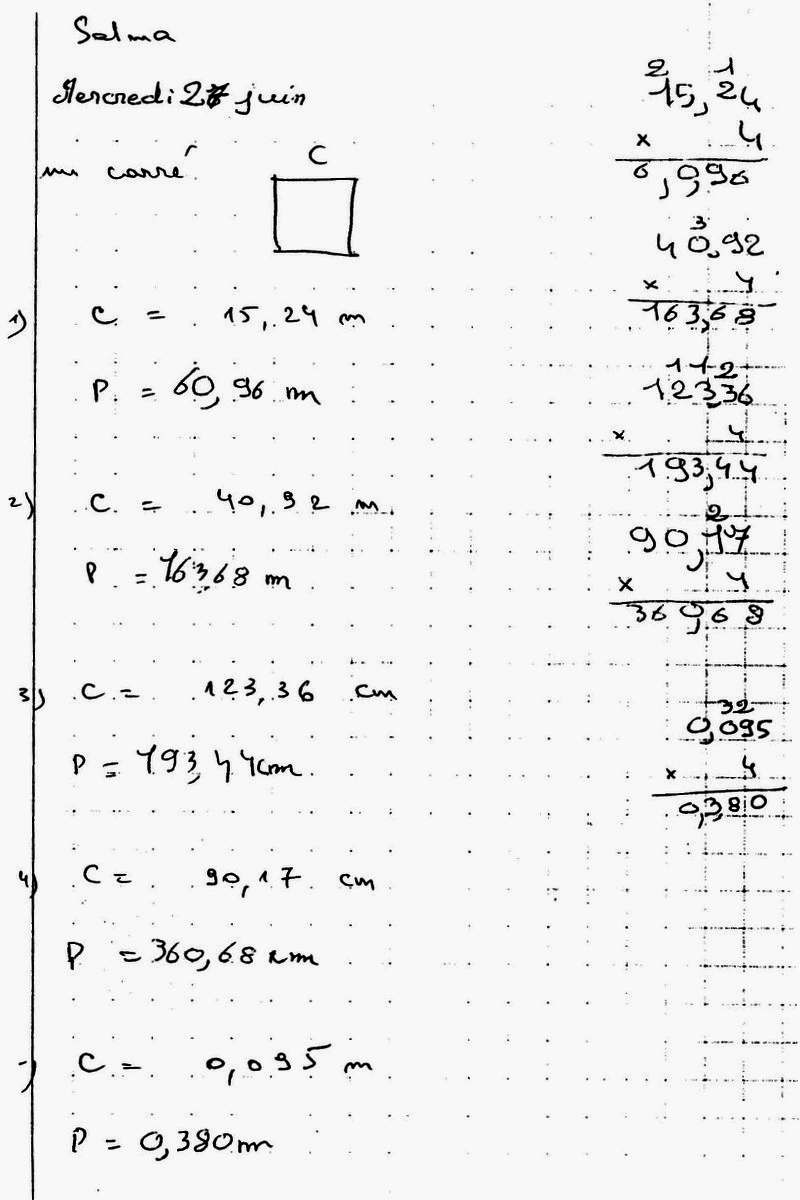 Salma
Mercredi 27 juin
un carré
C
1) C = 15,24 m
P = 60,96 m
2) C = 40,92 m
P = 163,68 m
3) C = 123,36 cm
P = 193,44 cm
4) C = 90,17 cm
P = 360,68 cm
C = 0,095 m
P = 0,380 m
2 1
15,24
x 4
6,0,96
3
40,92
x 4
163,68
1 1 2
123,36
x 4
193,44
2
90,17
x 4
360,68
32
0,095
x 4
0,380